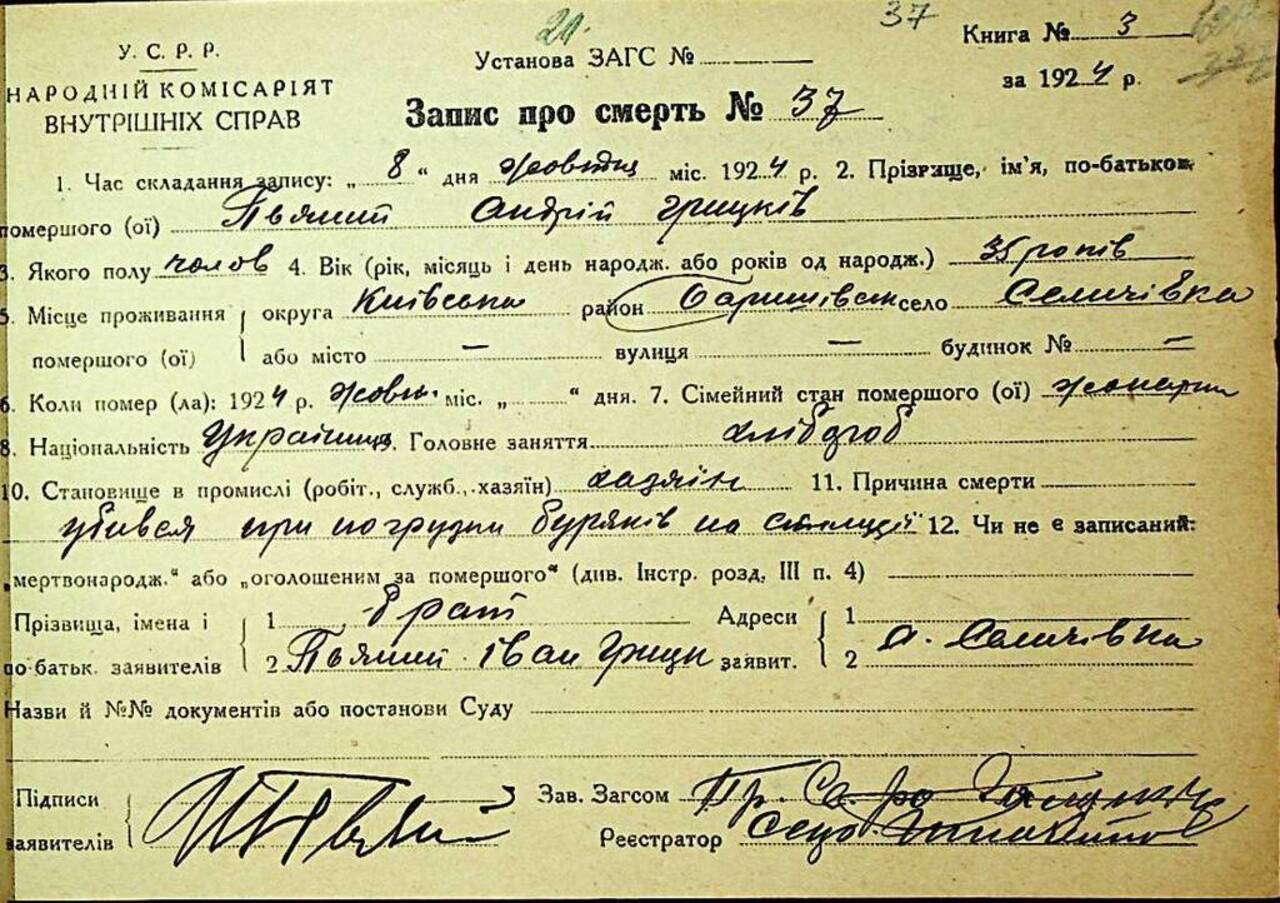 37
У. С. Р. Р.
НАРОДНІЙ КОМІСАРІЯТ
ВНУТРІШНІХ СПРАВ
20.
Установа ЗАГС №
Книга № 3
за 1924 р.
Запис про смерть № 37
1. Час складання запису: „ 8 “ дня жовтня міс. 1924 р. 2. Прізвище, ім'я, по-батькові
помершого (ої) Пьяний Андрій Грицків
3. Якого полу чолов 4. Вік (рік, місяць і день народж. або років од народж.) 35 років
5. Місце проживання помершого (ої) округа Київська район Баришівськ село Селичівка
або місто — вулиця — будинок № —
6. Коли помер (ла): 1924 р. жовт. міс. „ “ дня. 7. Сімейний стан помершого (ої) жонатий
8. Національність Українець 9. Головне заняття хлібороб
10. Становище в промислі (робіт., служб., хазяїн) хазяїн 11. Причина смерти
убився при погрузки буряків на станції 12. Чи не є записаний:
„мертвонародж.“ або „оголошеним за помершого“ (див. Інстр. розд. III п. 4)
Прізвища, імена і по батьк. заявителів 1 брат Адреси заявит. 1
2 Пьяний Іван Грицк 2 с. Селичівка
Назви й №№ документів або постанови Суду
Підписи заявителів
Зав. Загсом
Реєстратор